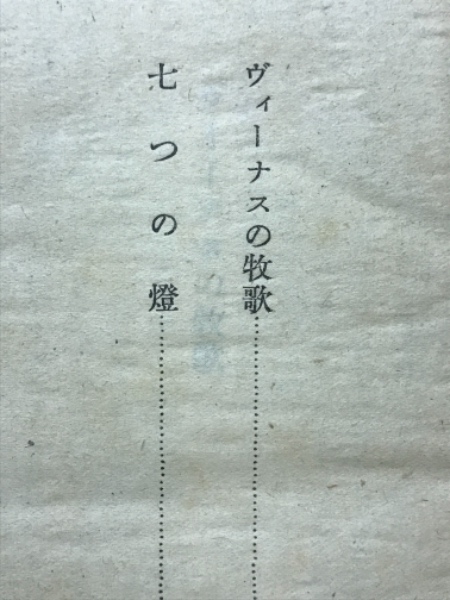 ヴィーナスの牧歌
七つの燈